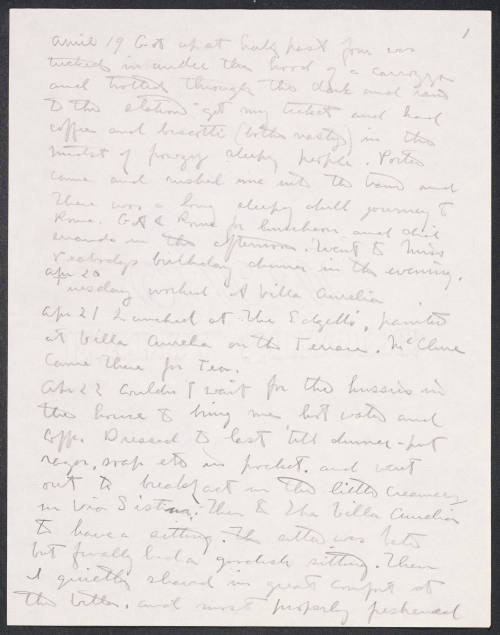 1
April 19 Got up at half past four was
tucked in under the hood of a carrozza
and trotted through the dark and rain
to the station got my ticket and had
coffee and biscotti (both nasty) in the
midst of frowzy sleepy people. Porter
came and rushed me into the train and
there was a long sleepy chill journey to
Rome. Got to Rome for luncheon and did
errands in the afternoon. Went to Miss
Peabodys birthday dinner in the evening.
Apr 20
Tuesday worked at Villa Aurelia
Apr 21 Lunched at the Edgells, painted
at Villa Aurelia on the Terrace. McClure
came there for Tea.
Apr 22 Couldn't wait for the hussies in
the house to bring me hot water and
coffee. Dressed to last 'till dinner - put
razor, soap etc in pocket. and went
out to breakfast in the little creamery
in Via Sistina. Then to the Villa Aurelia
to have a sitting. The sitter was late
but finally had a goodish sitting. Then
I quietly shaved in great comfort at
the Villa. and most properly freshened